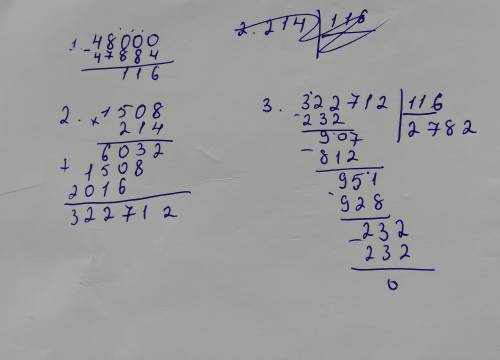 1. 48000
- 47884
116
2. 214 | 116
2. × 1508
214
6032
+ 1508
2016
322712
3. 322712 | 116
- 232 | 2782
907
- 812
951
- 928
- 232
232
0